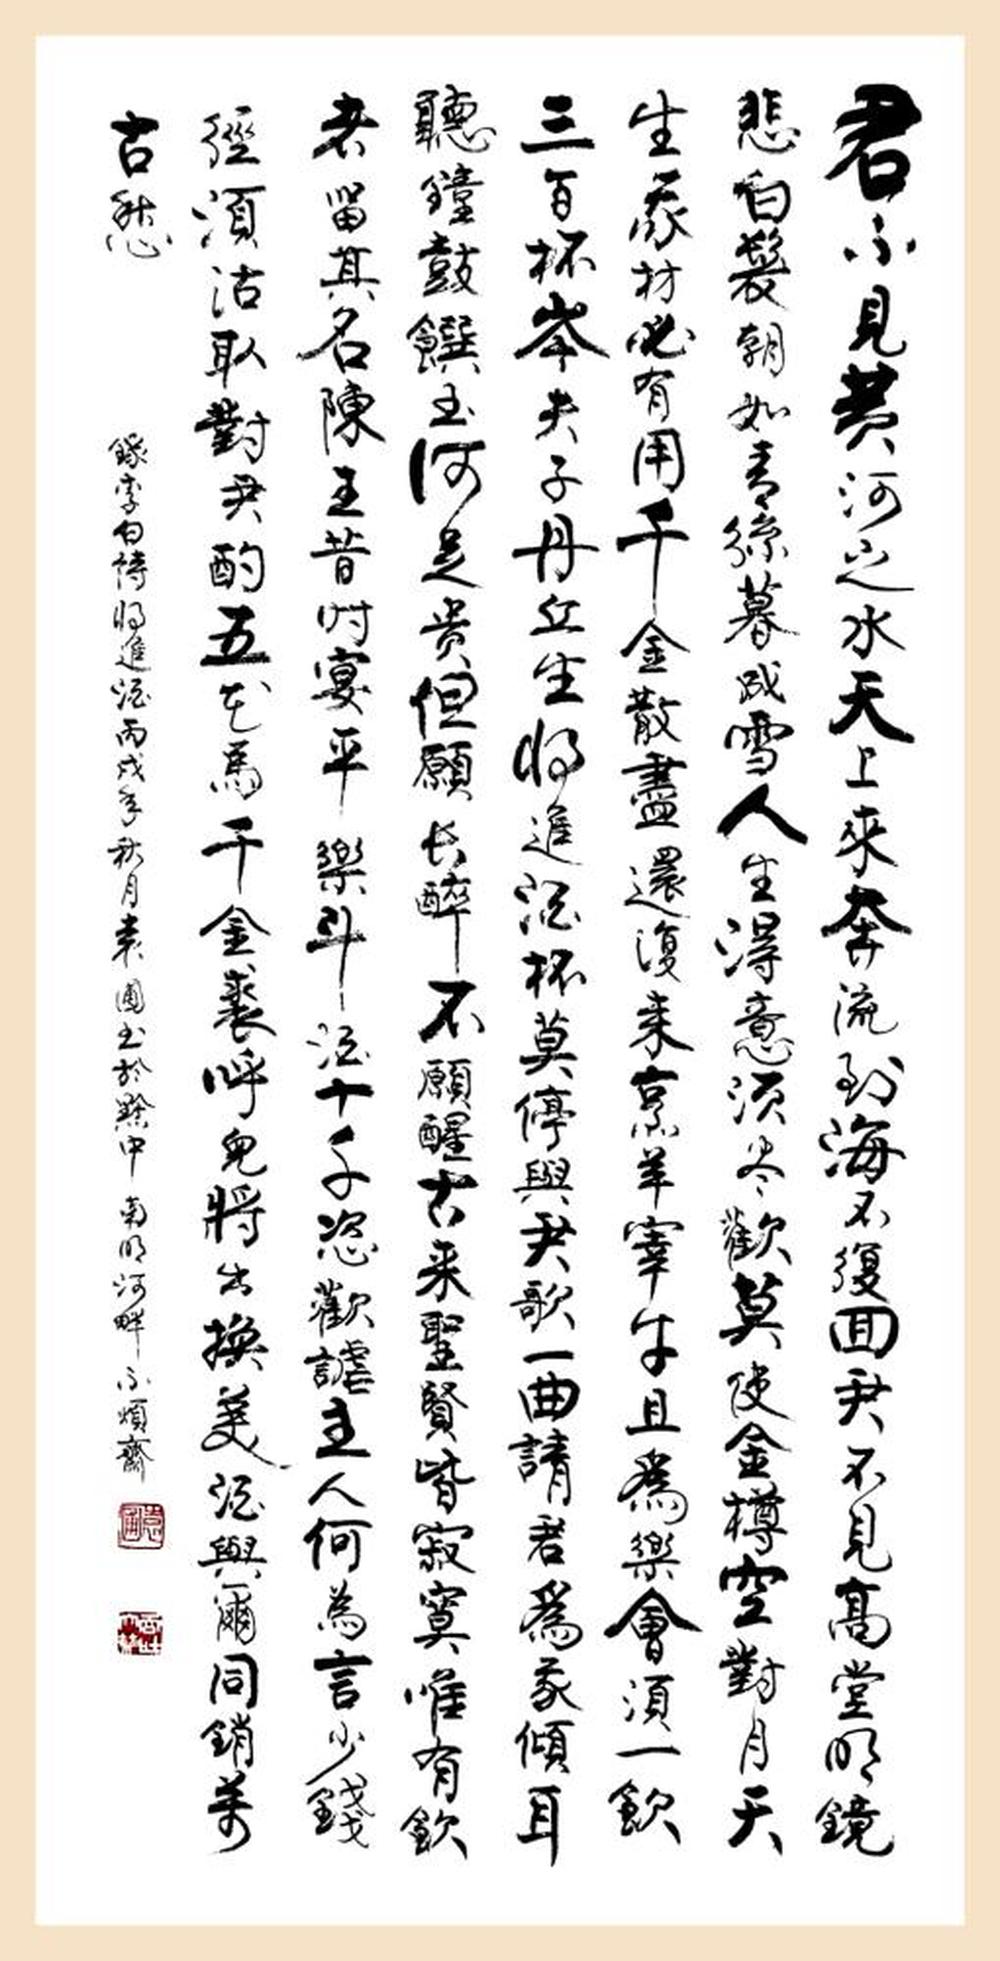 君不見黄河之水天上來奔流到海不復回君不見高堂明鏡
悲白髮朝如青絲暮成雪人生得意须尽歡莫使金樽空對月天
生我材必有用千金散盡還復来烹羊宰牛且為樂會須一飲
三百杯岑夫子丹丘生将進酒杯莫停與君歌一曲請君為我傾耳
聽鐘鼓饌玉何足贵但願长醉不願醒古来聖賢皆寂寞唯有飲
者留其名陳王昔时宴平樂斗酒十千恣歡謔主人何為言少錢
徑須沽取對君酌五花馬千金裘呼兒將出換美酒與爾同銷萬
古愁
錄李白詩将進酒丙戌年秋月袁圃书於黔中南明河畔不煩齋
袁圃